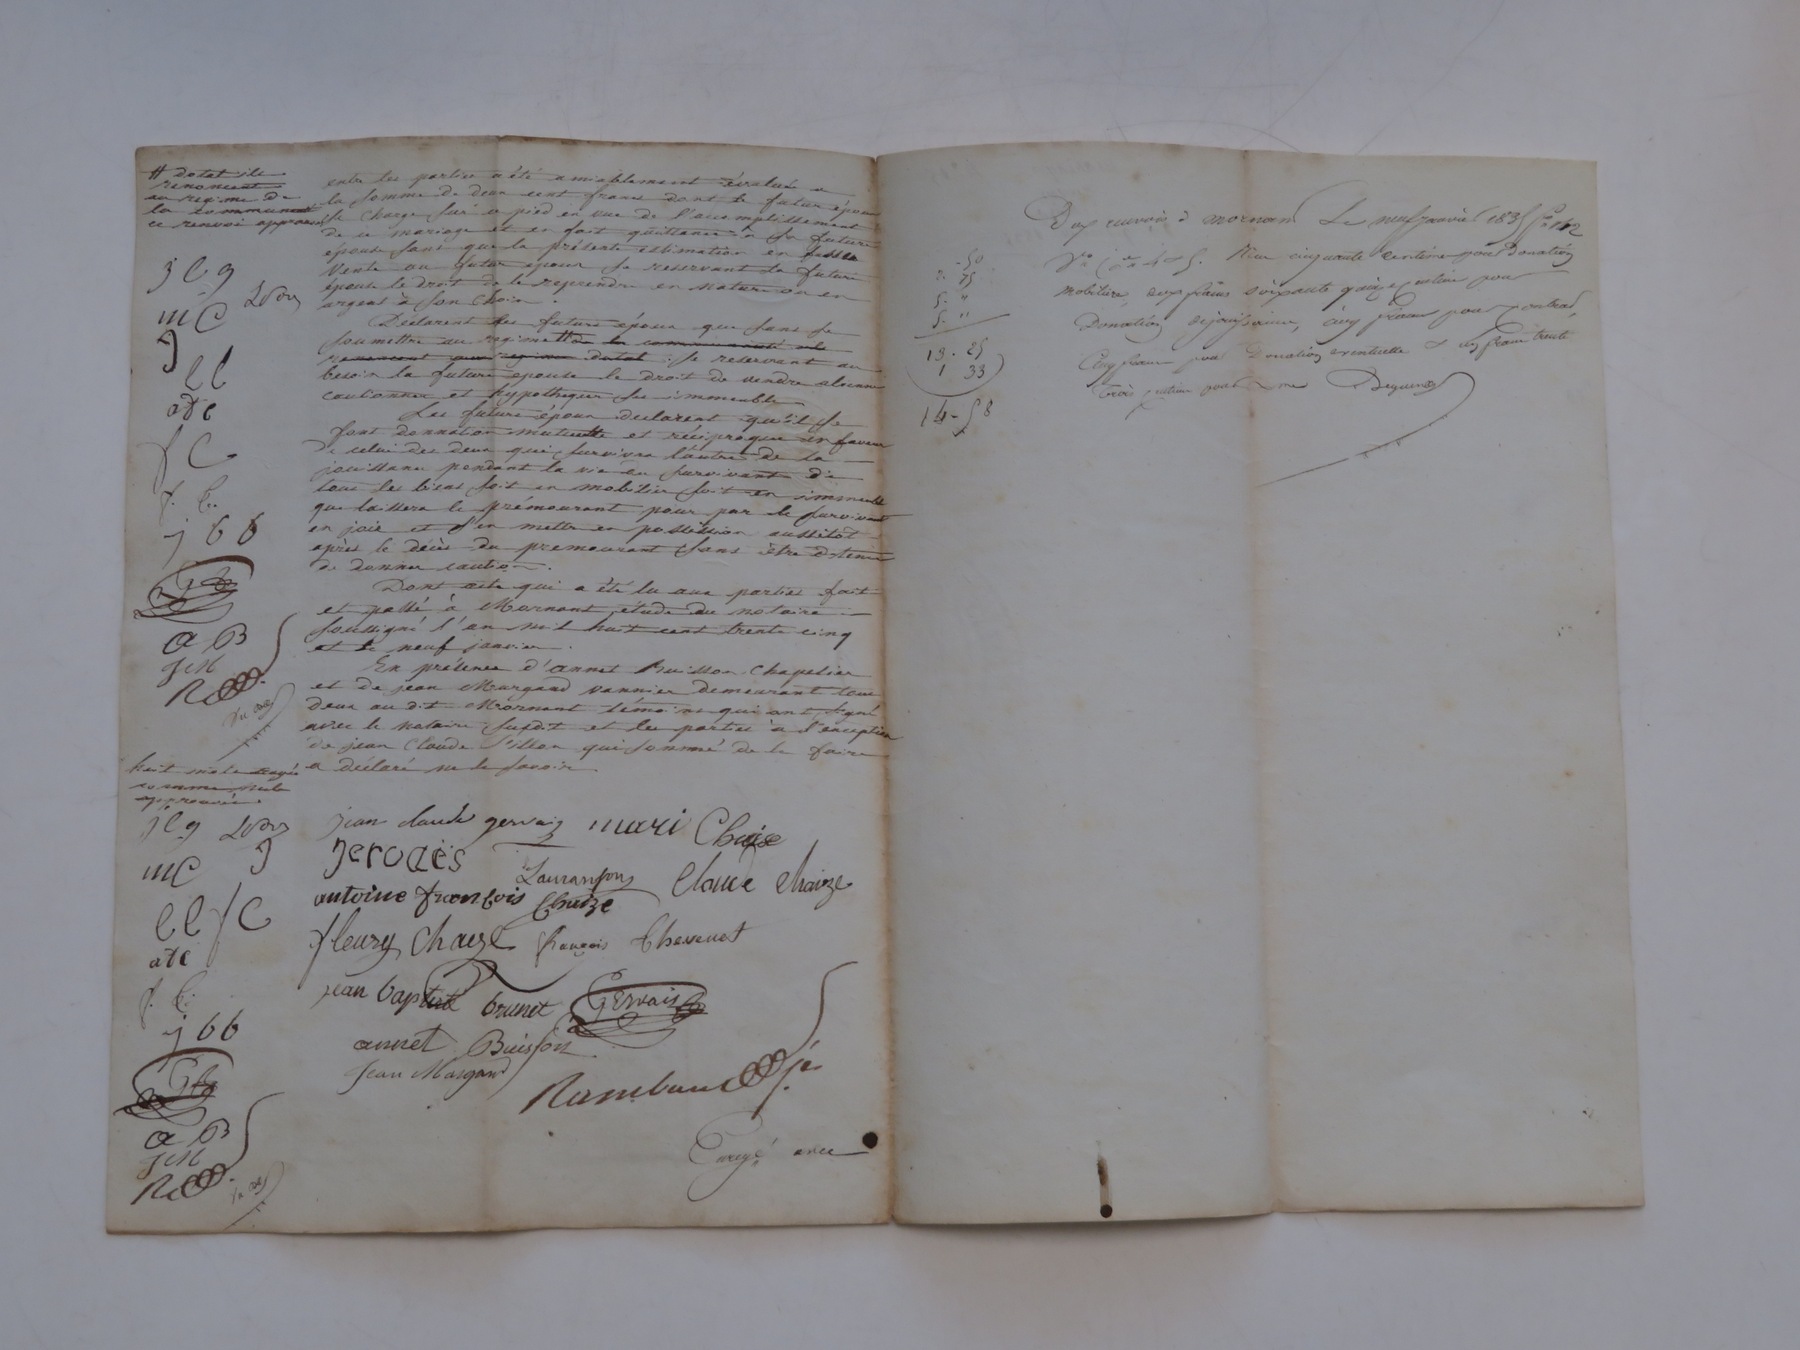 # dotal ils
renoncent
au regime de
la communauté
ce renvoi approuvé
jCg
mC
J
CC
afC
fC
f. C.
jbb
aB
JM
entre les parties a été amiablement évaluée a
la somme de deux cent francs dont le futur époux
se charge sur ce pied en vue de l'accomplissement
de ce mariage et en fait quittance à sa future
épouse sans que la présente estimation en fasse
vente au futur époux se reservant la future
épouse le droit de le reprendre en nature ou en
argent à son choix.
Déclarent les futurs époux que sans se
soumettre au regime # de la communauté ils
renoncent au regime dotal. se reservant au
besoin la future epouse le droit de vendre aliener
cautionner et hypothequer ses immeubles
Les futurs époux declarent qu'ils se
font donnation mutuelle et réciproque en faveur
de celui des deux qui survivra l'autre de la
jouissance pendant la vie du survivant de
tous les biens soit en mobilier soit en immeuble
que laissera le prémourant pour par le survivant
en jouir et s'en mettre en possession aussitôt
après le décès du premourant sans être obtenu
de donner caution.
Dont acte qui a été lu aux parties fait
et passé à Mornant étude du notaire
soussigné l'an mil huit cent trente cinq
et le neuf janvier.
En présence d'annet Buisson chapelier
et de jean Margand vannier demeurant tous
deux au dit Mornant témoins qui ont signé
avec le notaire susdit et les parties à l'exception
de jean Claude qui sommé de le faire
a déclaré ne le savoir
huit mots rayés
comme nuls
approuvés
jCg
mC J
CC fC
afC
f. C.
jbb
aB
JM
jean claude gervais mari Chaise
Jerodes
Lauranson Claude Chaize
antoine françois Chaize
fleury Chaize françois Thevenet
jean baptiste brunet Gervais
annet Buisson
Jean Margand
Rambaud
Enregé avec
Enregistré à Mornant Le neuf janvier 1835
Reçu cinquante centimes pour Donation
mobiliere, deux francs soixante quinze centimes pour
Donation cinq francs pour contrat,
Cinq francs pour Donation eventuelle & un franc trente
trois centimes pour
- 50
2. 75
5. "
5. "
13 - 25
1 33
14 - 58